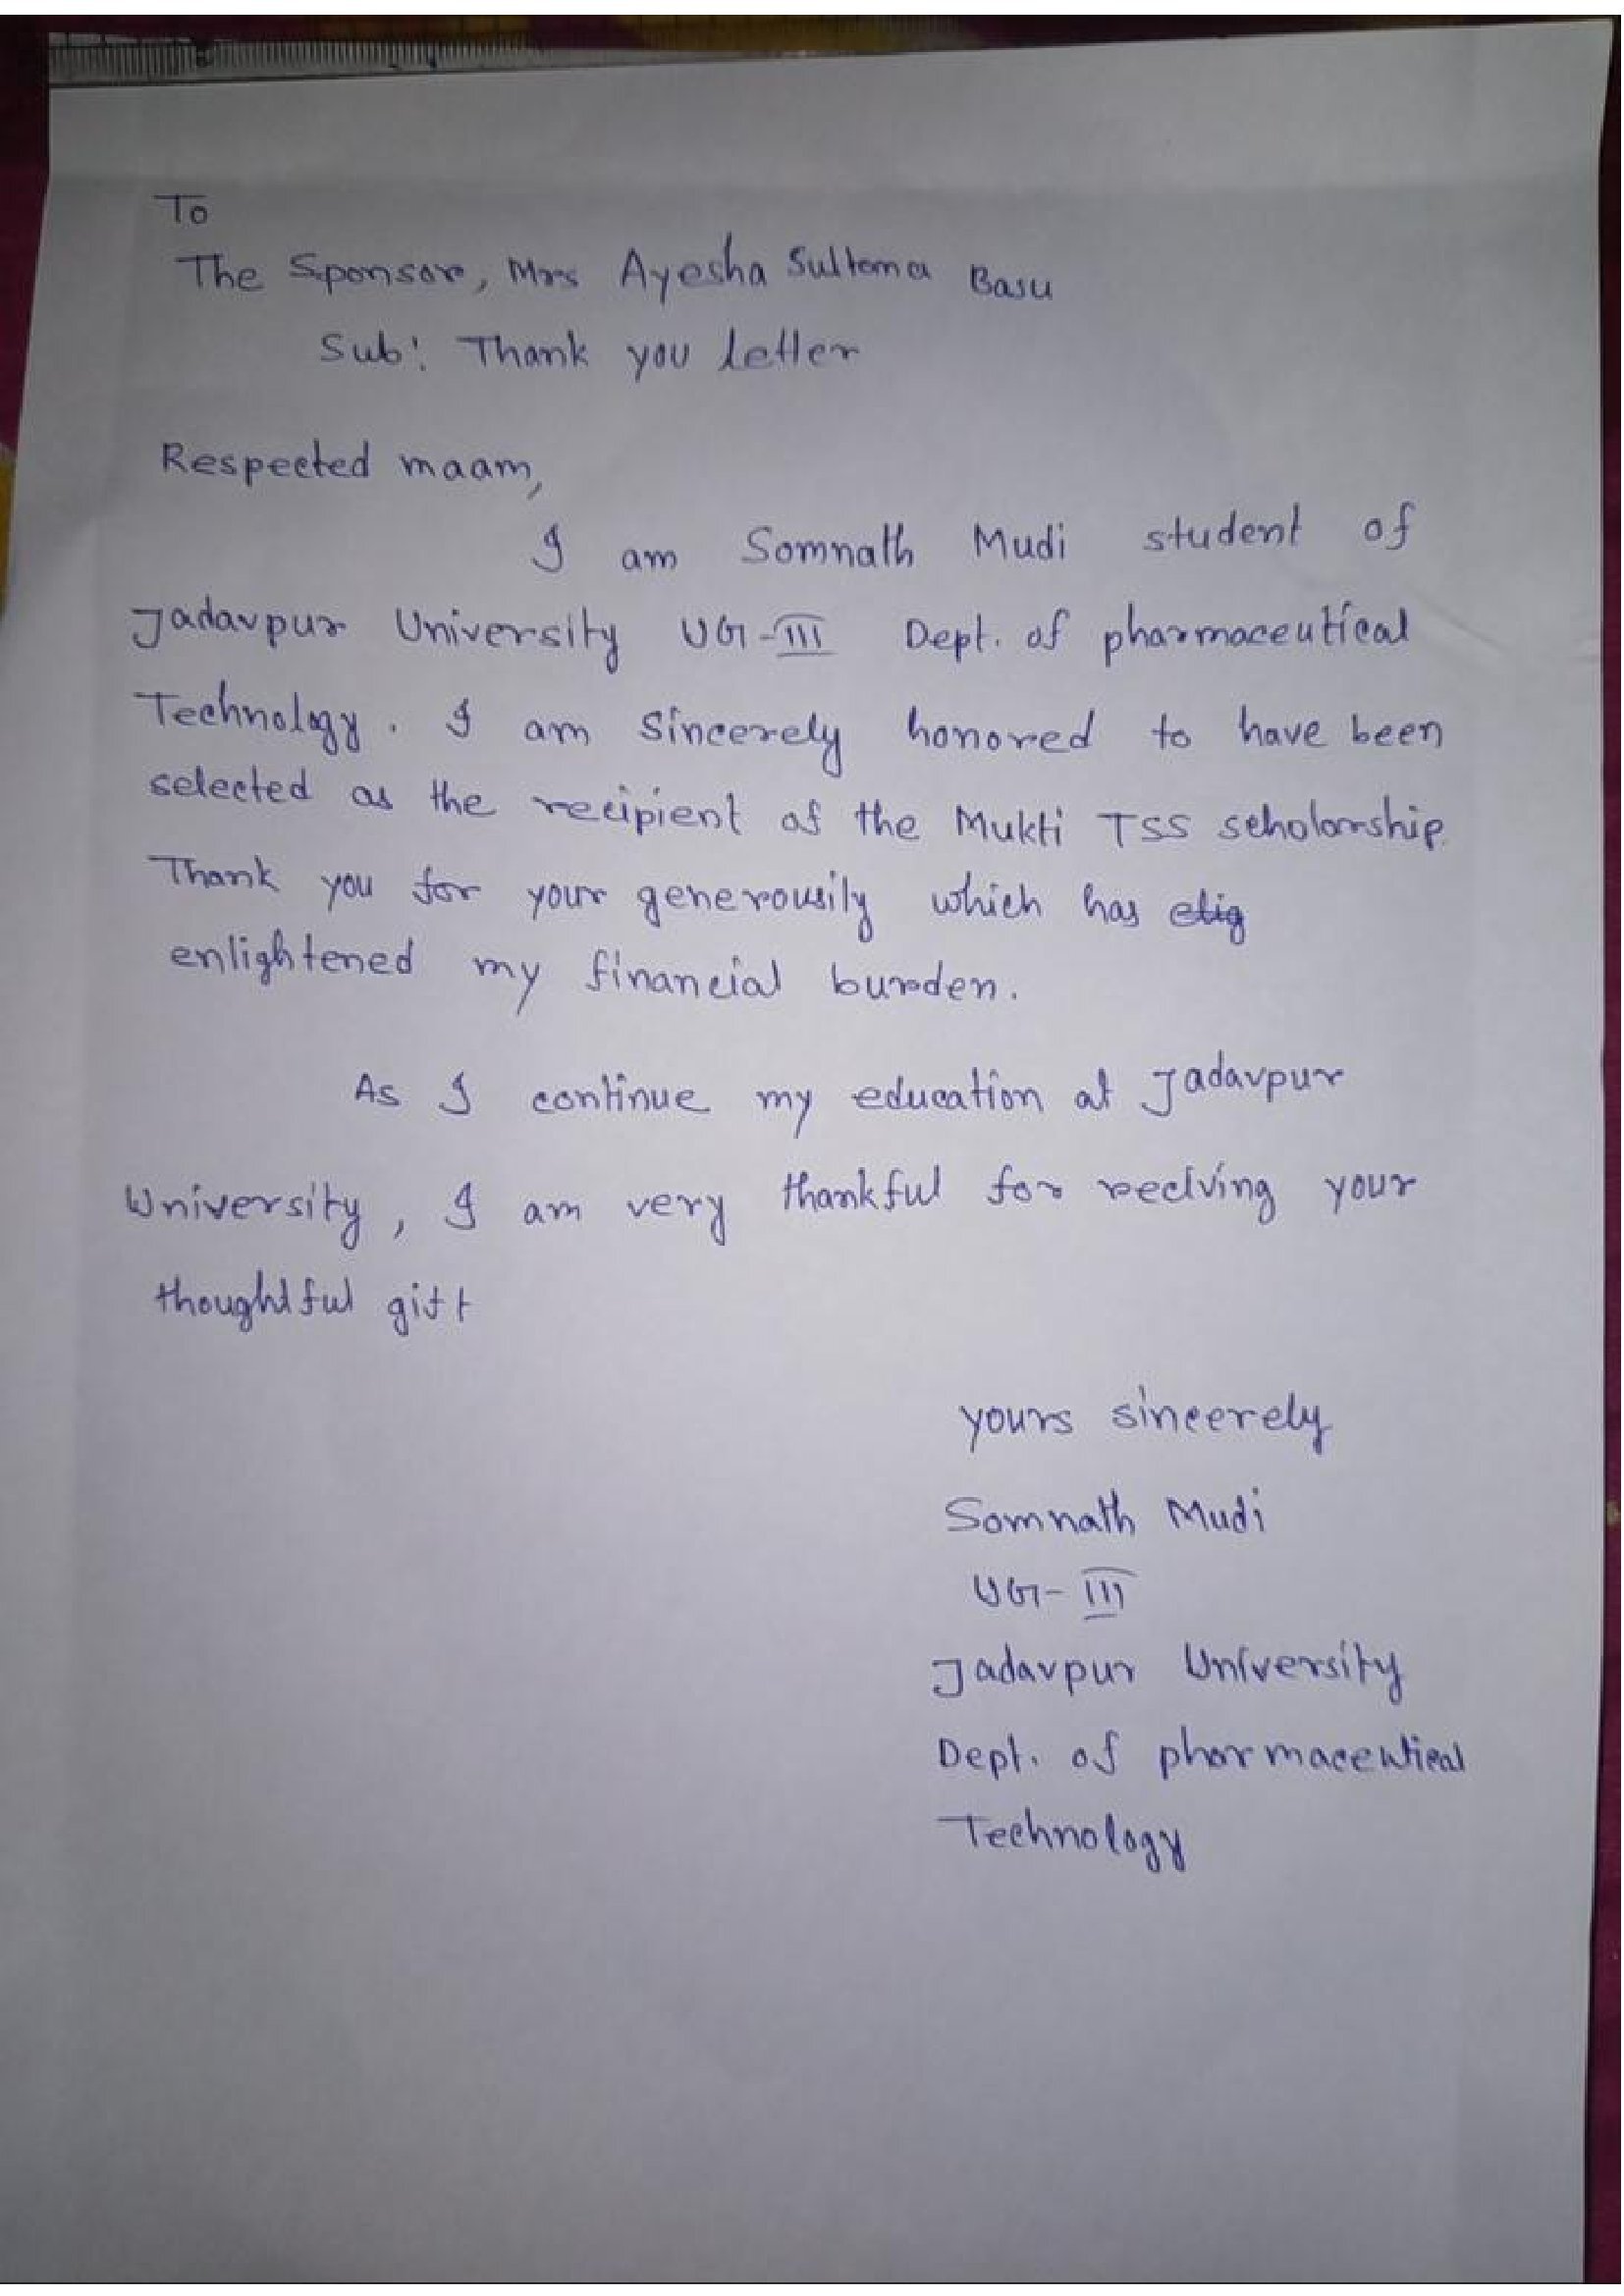 To
The Sponsor, Mrs Ayesha Sultana Basu
Sub: Thank you letter
Respected maam,
I am Somnath Mudi student of
Jadavpur University UG-III Dept. of pharmaceutical
Technology. I am sincerely honored to have been
selected as the recipient of the Mukti TSS scholarship.
Thank you for your generousily which has
enlightened my financial burden.
As I continue my education at Jadavpur
University, I am very thankful for reciving your
thoughtful gift
yours sincerely
Somnath Mudi
UG-III
Jadavpur University
Dept. of pharmaceutical
Technology